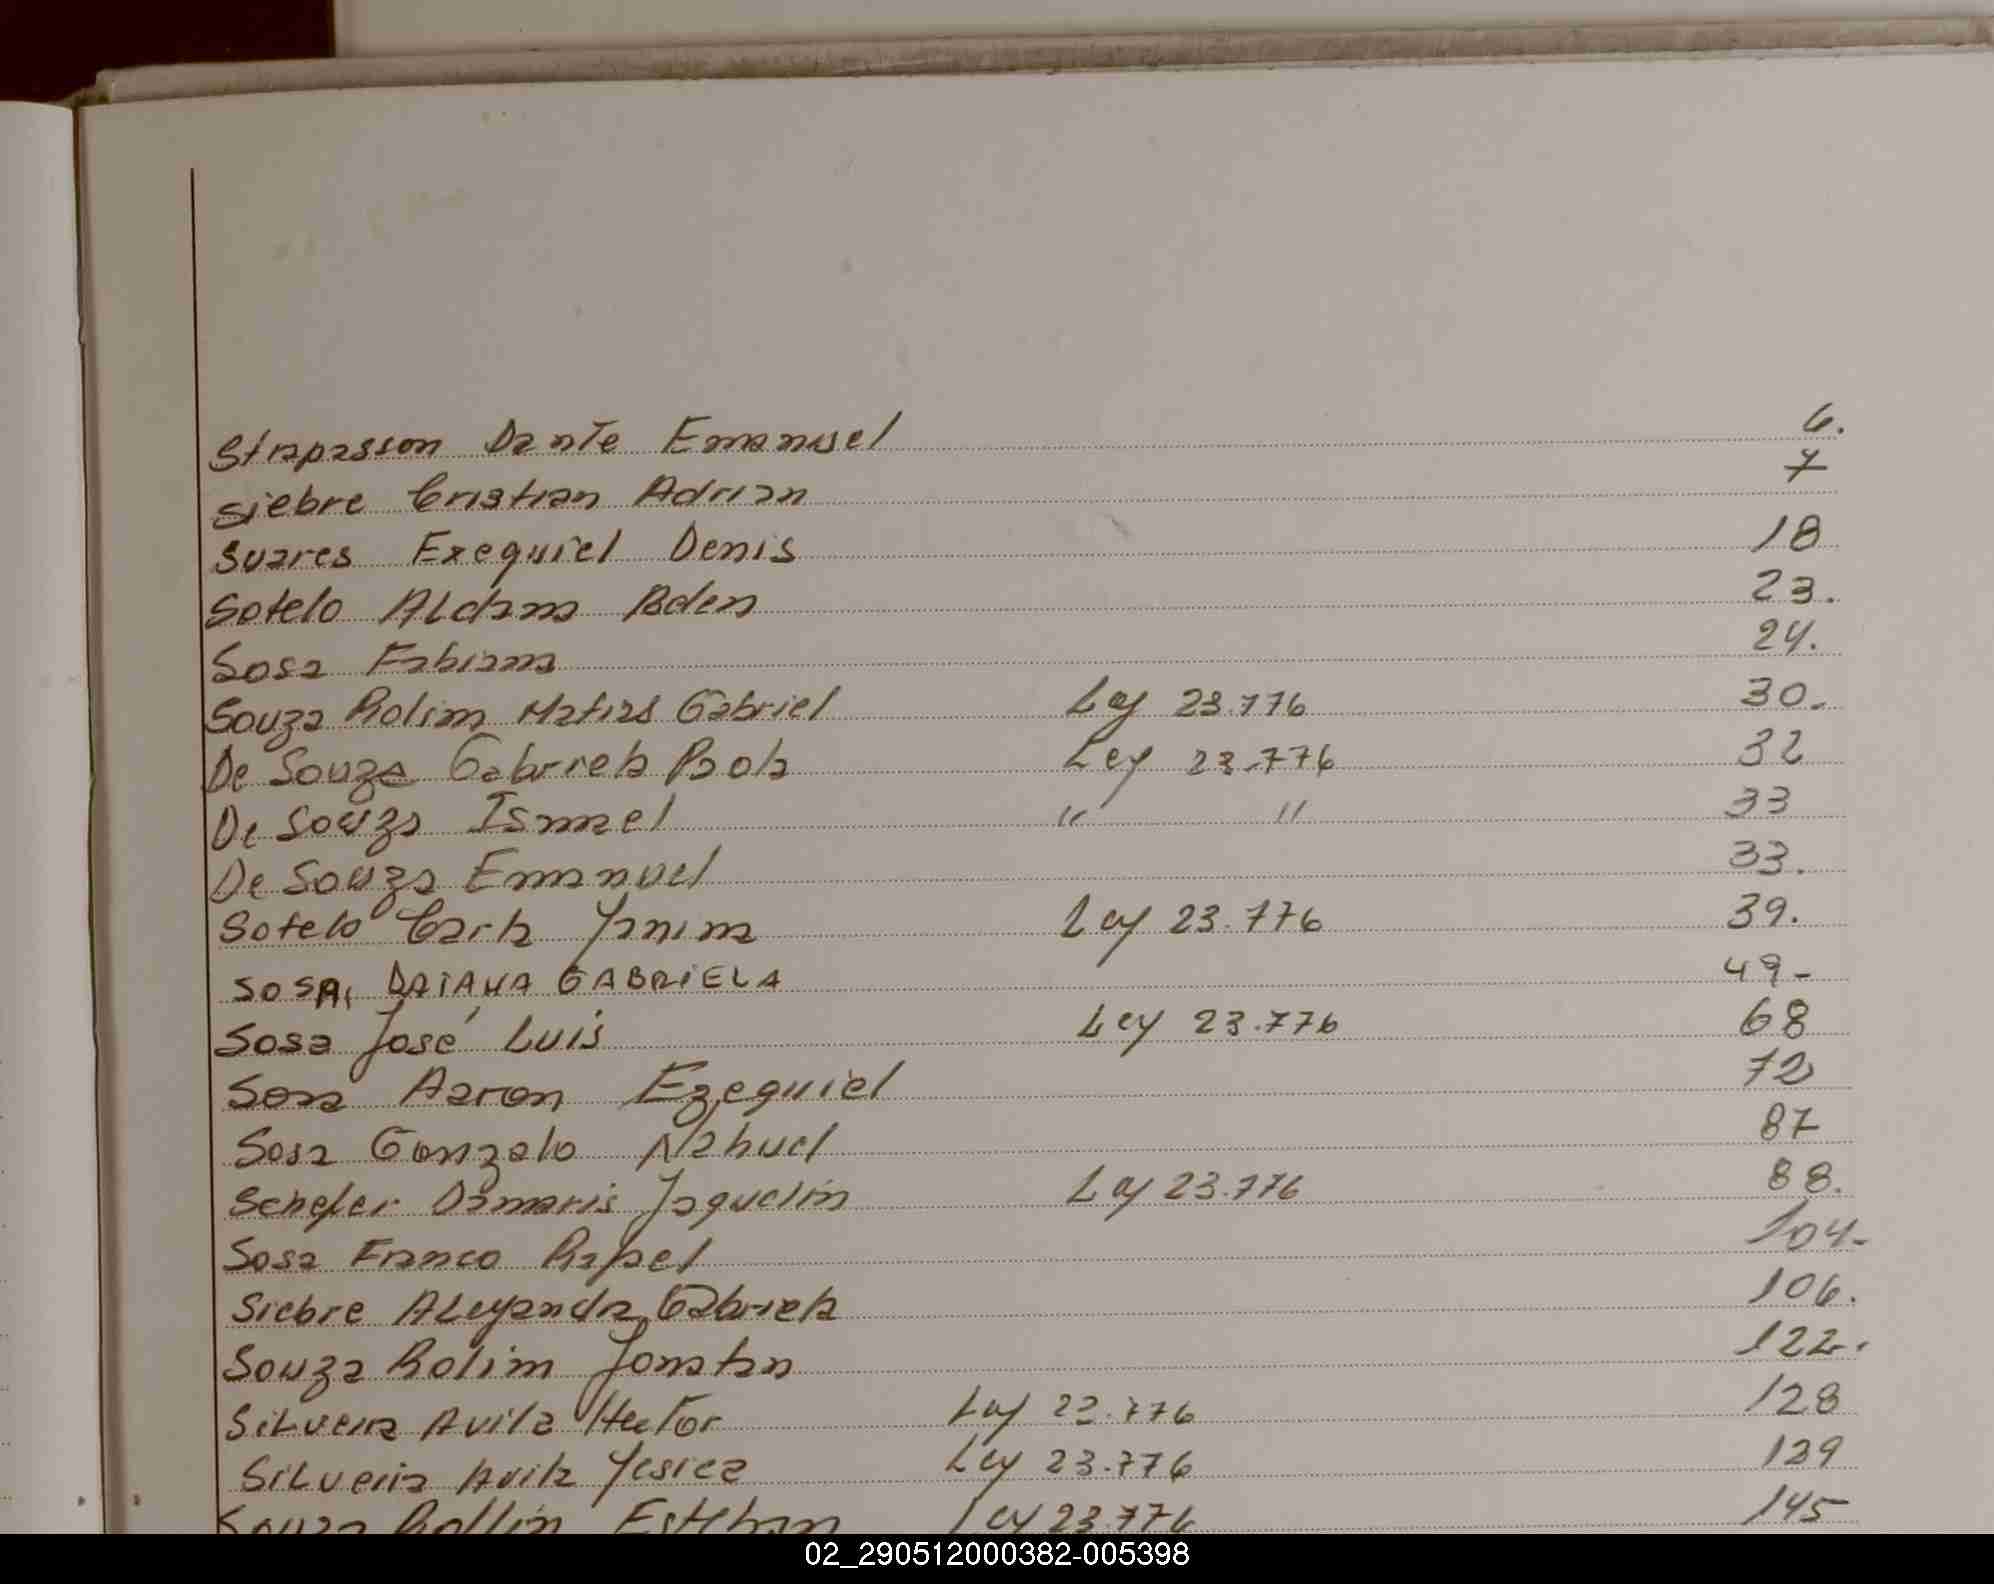 Strapasson Dante Emanuel 6.
Siebre Cristian Adrian 7
Suares Exequiel Denis 18
Sotelo Aldana Belen 23.
Sosa Fabiana 24.
Souza Rolim Matias Gabriel Ley 23.776 30.
De Souza Gabriela Paola Ley 23.776 32
De Souza Ismael " " 33
De Souza Emanuel 33.
Sotelo Carla Yanina Ley 23.776 39.
SOSA, DAIANA GABRIELA 49-
Sosa José Luis Ley 23.776 68
Sosa Aaron Ezequiel 72
Sosa Gonzalo Nahuel 87
Schefer Damaris Jaquelin Ley 23.776 88.
Sosa Franco Rafael 104-
Siebre Aleyandra Gabriela 106.
Souza Rolim Jonatan 122.
Silveira Avila Hector Ley 23.776 128
Silveira Avila Yesica Ley 23.776 139
Souza Rollin Esteban Ley 23.776 145
02_290512000382-005398